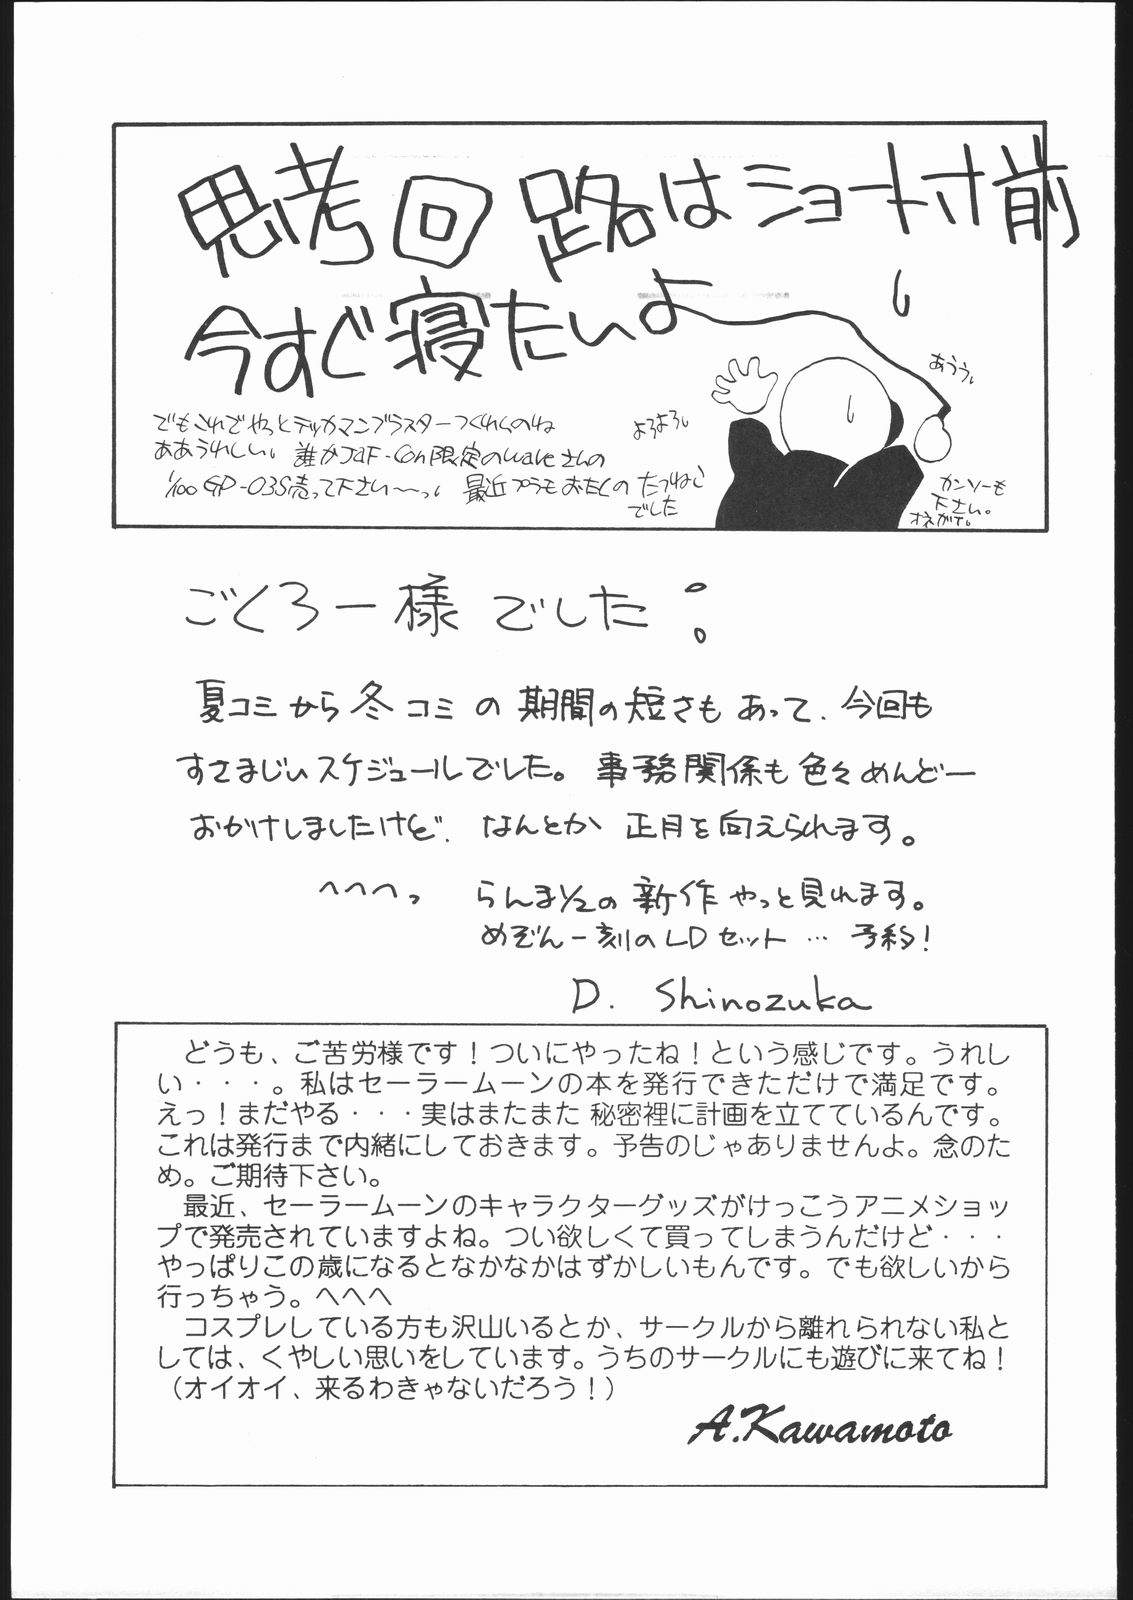 思考回路はショート寸前
今すぐ寝たいよ
あうう。
よろよろ。
でもこれでやっとテッカマンブラスターつくれるのね
ああうれしい。誰かJaF-Con限定のwaveさんの
1/100 GP-03S売って下さい〜っ。最近プラモおたくの たつねこ
でした
カンソーも
下さい。
オネガイ。
ごくろー様でした:
夏コミから冬コミの期間の短さもあって、今回も
すさまじいスケジュールでした。事務関係も色々めんどー
おかけしましたけど、なんとか正月を向えられます。
へへへっ らんま1/2の新作やっと見れます。
めぞん一刻のLDセット…予約!
D. Shinozuka
どうも、ご苦労様です!ついにやったね!という感じです。うれし
い・・・。私はセーラームーンの本を発行できただけで満足です。
えっ!まだやる・・・実はまたまた秘密裡に計画を立てているんです。
これは発行まで内緒にしておきます。予告のじゃありませんよ。念のた
め。ご期待下さい。
最近、セーラームーンのキャラクターグッズがけっこうアニメショッ
プで発売されていますよね。つい欲しくて買ってしまうんだけど・・・
やっぱりこの歳になるとなかなかはずかしいもんです。でも欲しいから
行っちゃう。へへへ
コスプレしている方も沢山いるとか、サークルから離れられない私と
しては、くやしい思いをしています。うちのサークルにも遊びに来てね!
(オイオイ、来るわきゃないだろう!)
A.Kawamoto